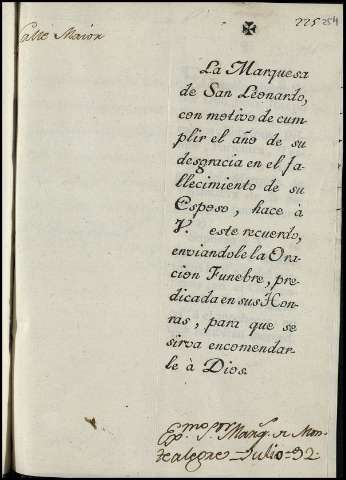 Calle Maior
225 254
La Marquesa
de San Leonardo,
con motivo de cum-
plir el año de su
desgracia en el fa-
llecimiento de su
Esposo, hace à
V. este recuerdo,
enviandole la Ora-
cion Funebre, pre-
dicada en sus Hon-
ras, para que se
sirva encomendar-
le à Dios.
Exmo. Sor. Marq. de Mon-
tealegre = Julio = 92 =